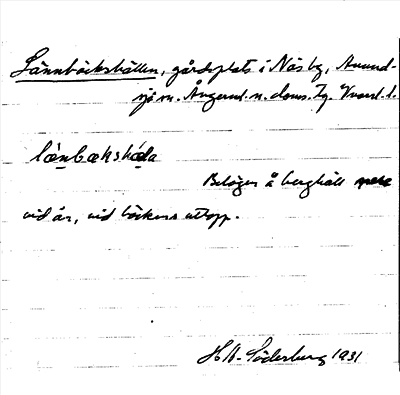 Lännbäckshällen, gårdsplats i Näs by, Anund-
sjö sn. Ångerml. n. doms. Tg. Vnorrl. l.
lä̀nbækshǽla
Belägen å berghäll
vid ån, vid bäckens utlopp.
H. W. Söderberg 1931